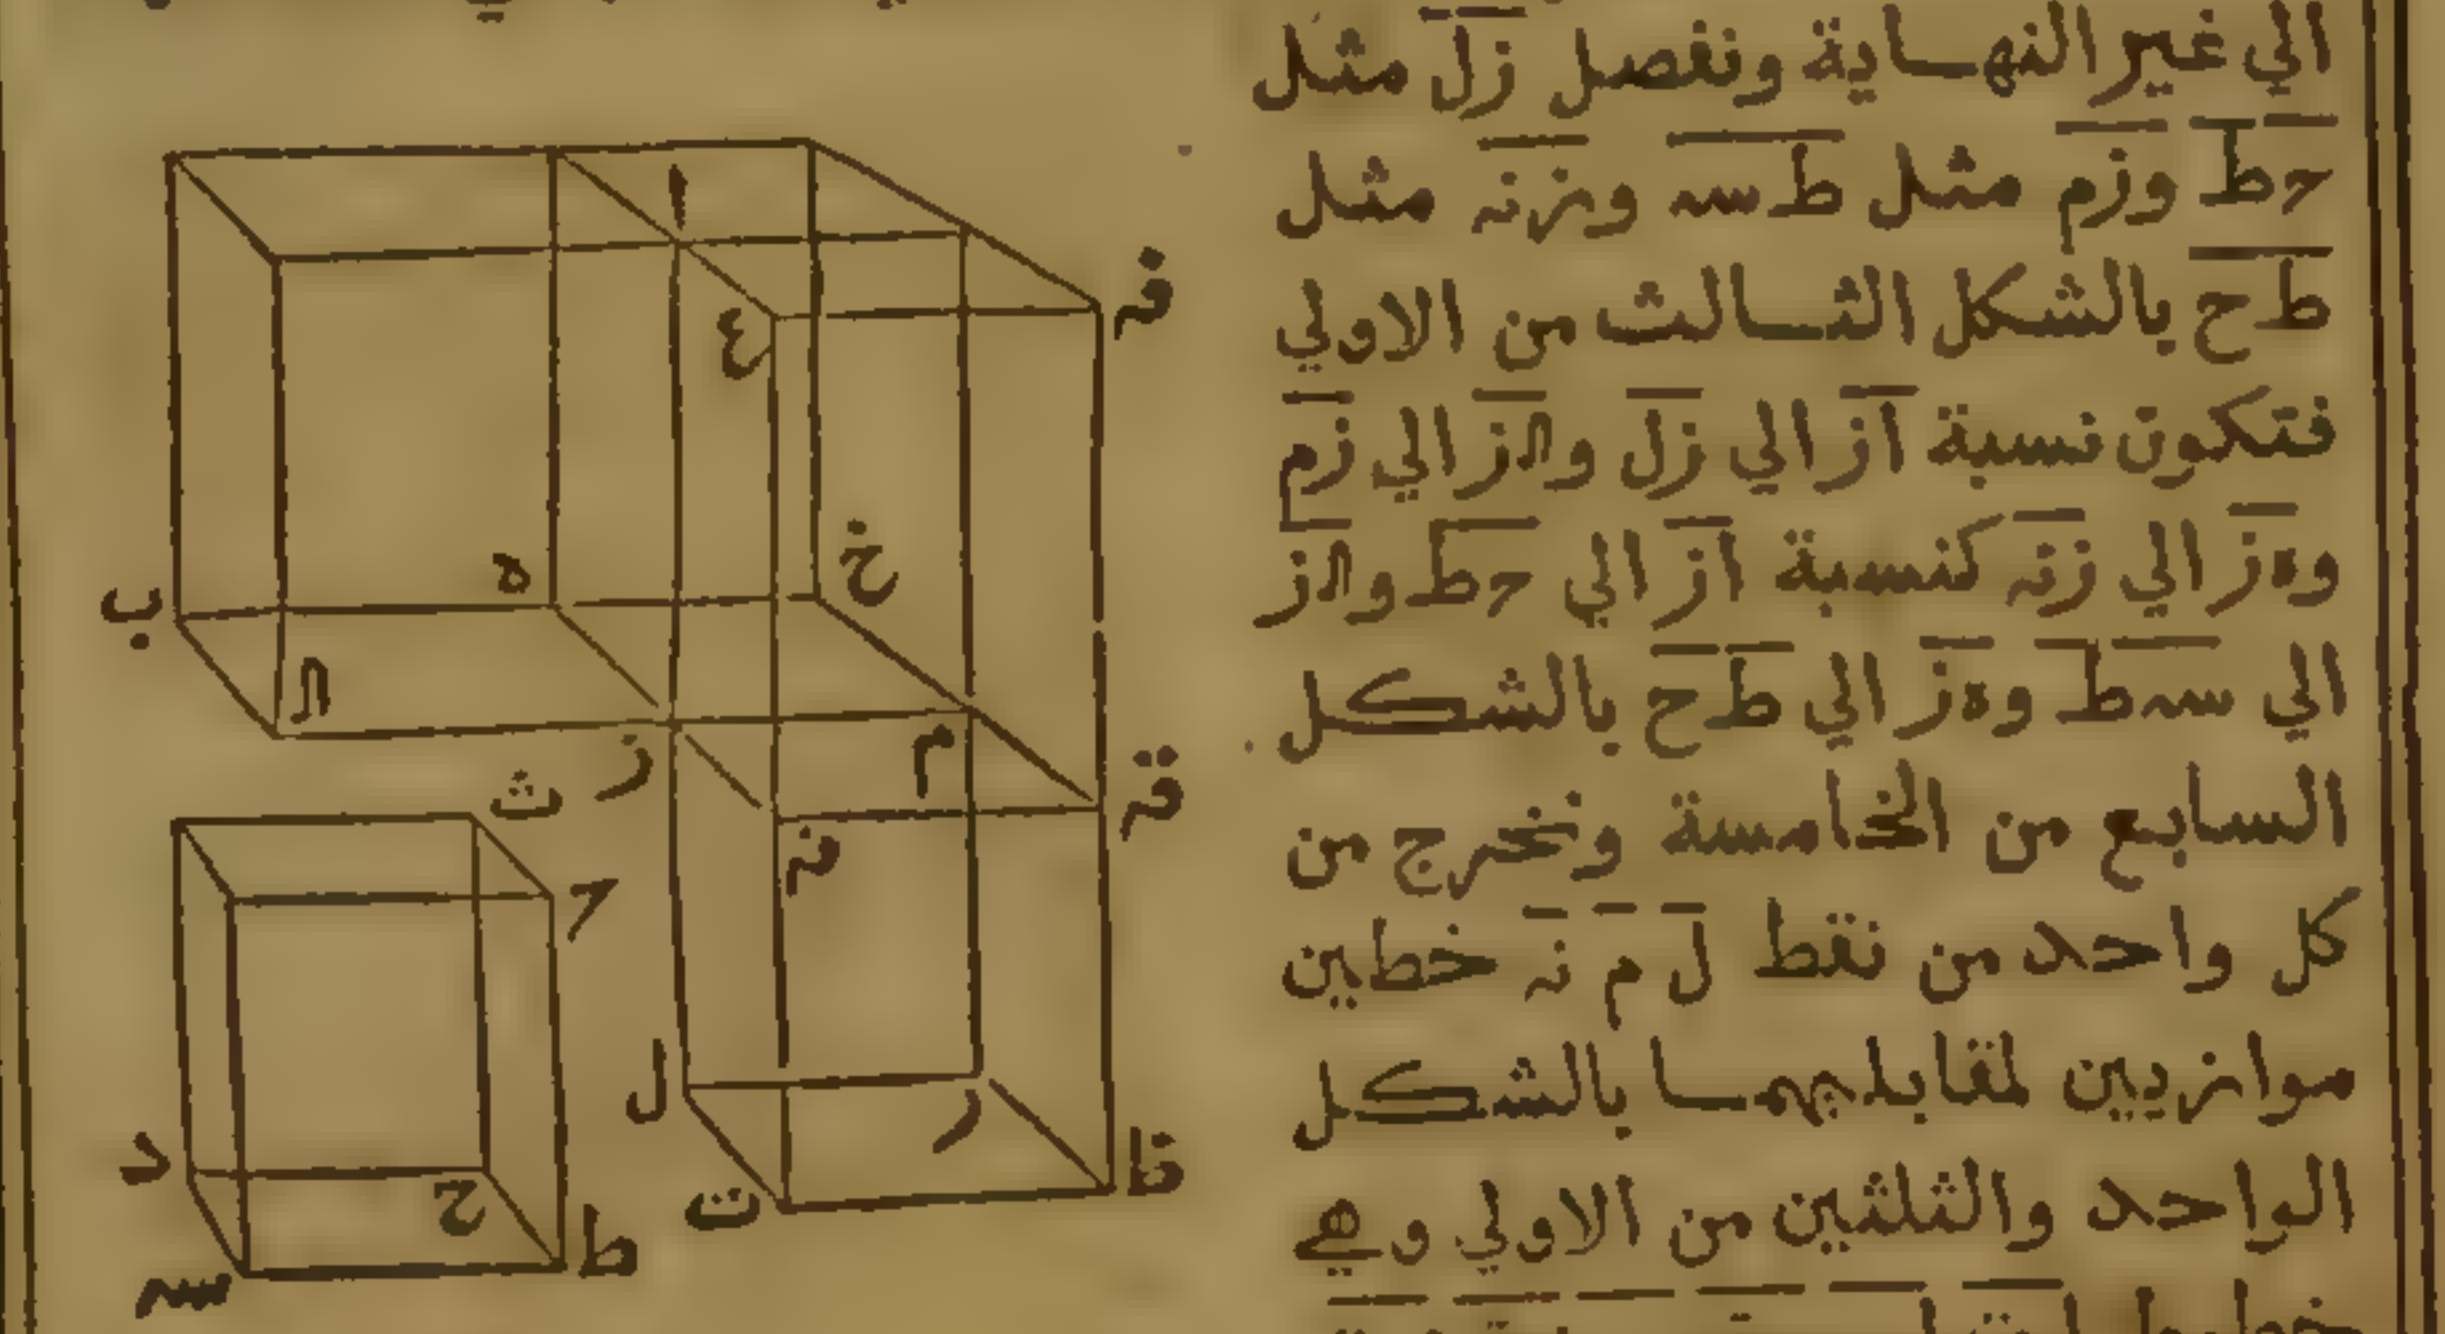 الي غير النهاية ونفصل زل مثل
حط وزم مثل طسہ وزنہ مثل
طح بالشكل الثالث من الاولي
فتكون نسبة از الي زل و\u200fلاز الي زم
وهز الي زنہ كنسبة از الي حط ولاز
الي سہط وهز الي طح بالشكل
السابع من الخامسة ونخرج من
كل واحد من نقط ل م نہ خطين
موازيين لمقابلهما بالشكل
الواحد والثلثين من الاولي وهي
ا
ف
ع
خ
ه
ب
لا
ز
م
ق
ث
ن
ح
ل
ر
د
ح
ت
ظ
ط
سہ